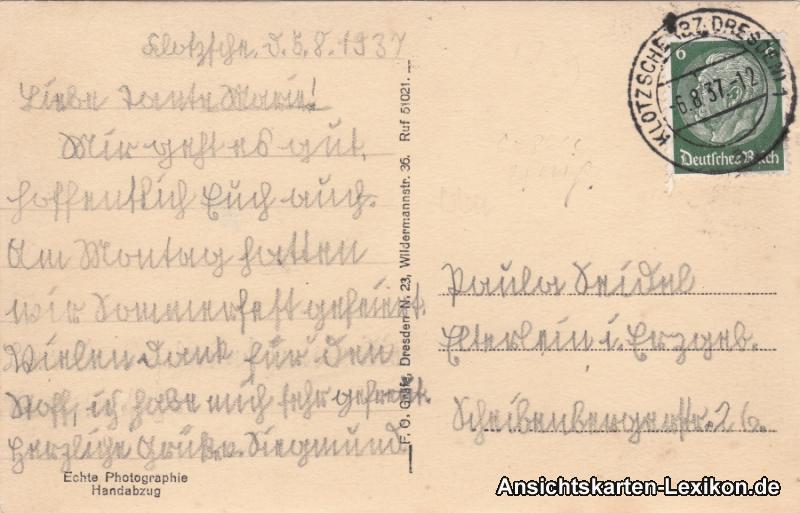 Klotzsche, d. 5.8.1937
Liebe Tante Marie!
Mir geht es gut,
hoffentlich Euch auch.
Am Montag hatten
wir Sommerfest gefeiert.
Vielen Dank für den
Stoff, ich habe mich sehr gefreut.
Herzliche Grüße v. Siegmund.
Echte Photographie
Handabzug
F. O. Gräfe, Dresden-N. 23, Wildermannstr. 36. Ruf 51021.
KLOTZSCHE (BZ. DRESDEN) 1
-6.8.37.-12
6
Deutsches Reich
Paula Seidel
Elterlein i. Erzgeb.
Scheibenbergerstr. 26.
Ansichtskarten-Lexikon.de